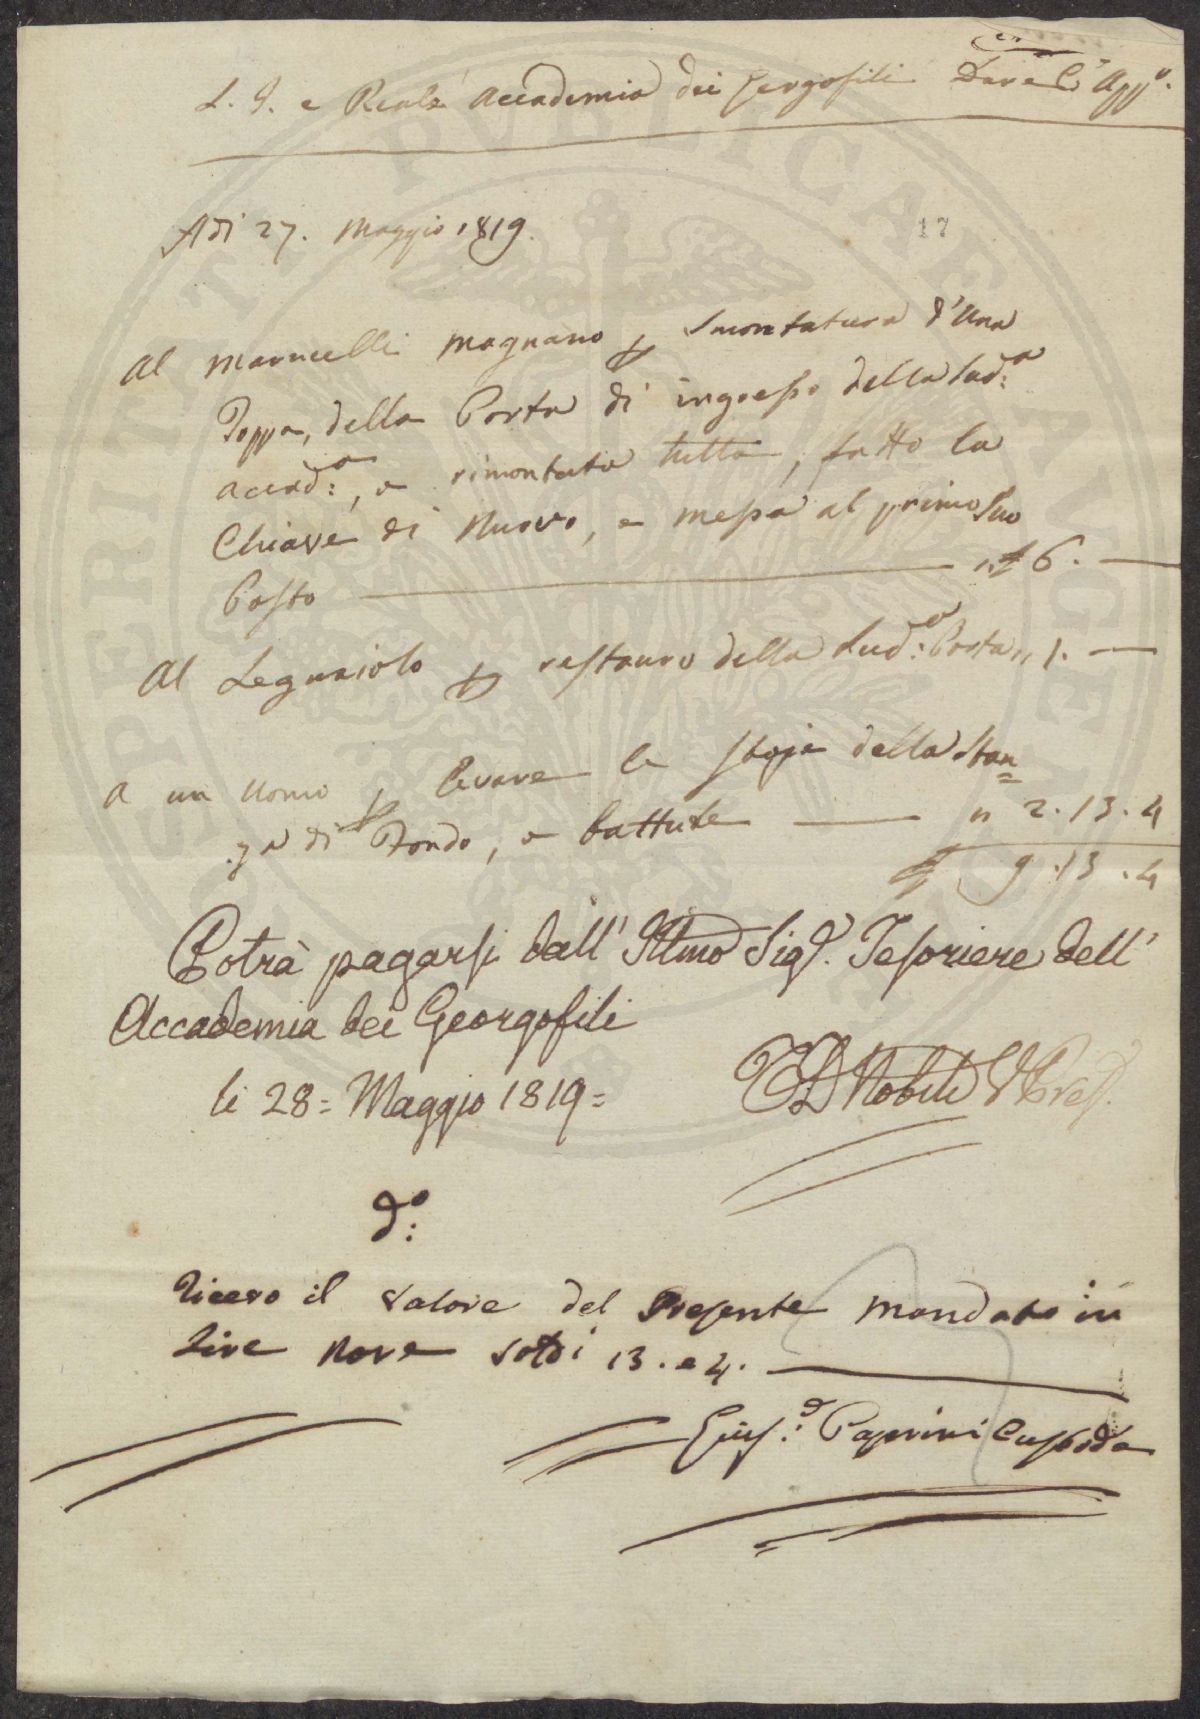 L. I. e Reale Accademia dei Gergofili Dare L' App.º
Adi 27. Maggio 1819.
17
Al Marucelli Magnano p smontatura d'Una
Toppa, della Porta di ingresso della Sud:ª
Accad:ª, e rimontata tutta, fatto la
Chiave di Nuovo, e messa al primo Suo
Posto 6.
Al Legnaiolo p restauro della Sud:ª Porta 1.
A un Uomo p levare le stoje della Stan=
za di Fondo, e battute 2.13.4
9.13.4
Potrà pagarsi dall' Illmo Sigr. Tesoriere dell'
Accademia dei Georgofili
li 28= Maggio 1819=
Nobili
dº:
Ricevo il valore del Presente Mandato in
Lire Nove soldi 13. e 4.
Giusº: Paperini Custode
PUBLICAE
PERITATI